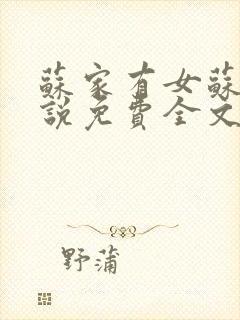 蘇家有女蘇
說免費全文
野蒲